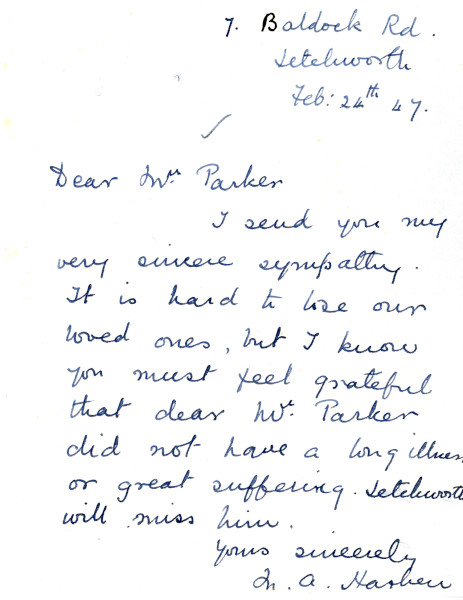 7. Baldock Rd.
Letchworth
Feb: 24th 47.
Dear Mrs Parker
I send you my
very sincere sympathy.
It is hard to lose our
loved ones, but I know
you must feel grateful
that dear Mr. Parker
did not have a long illness
or great suffering. Letchworth
will miss him.
Yours sincerely
M. A.